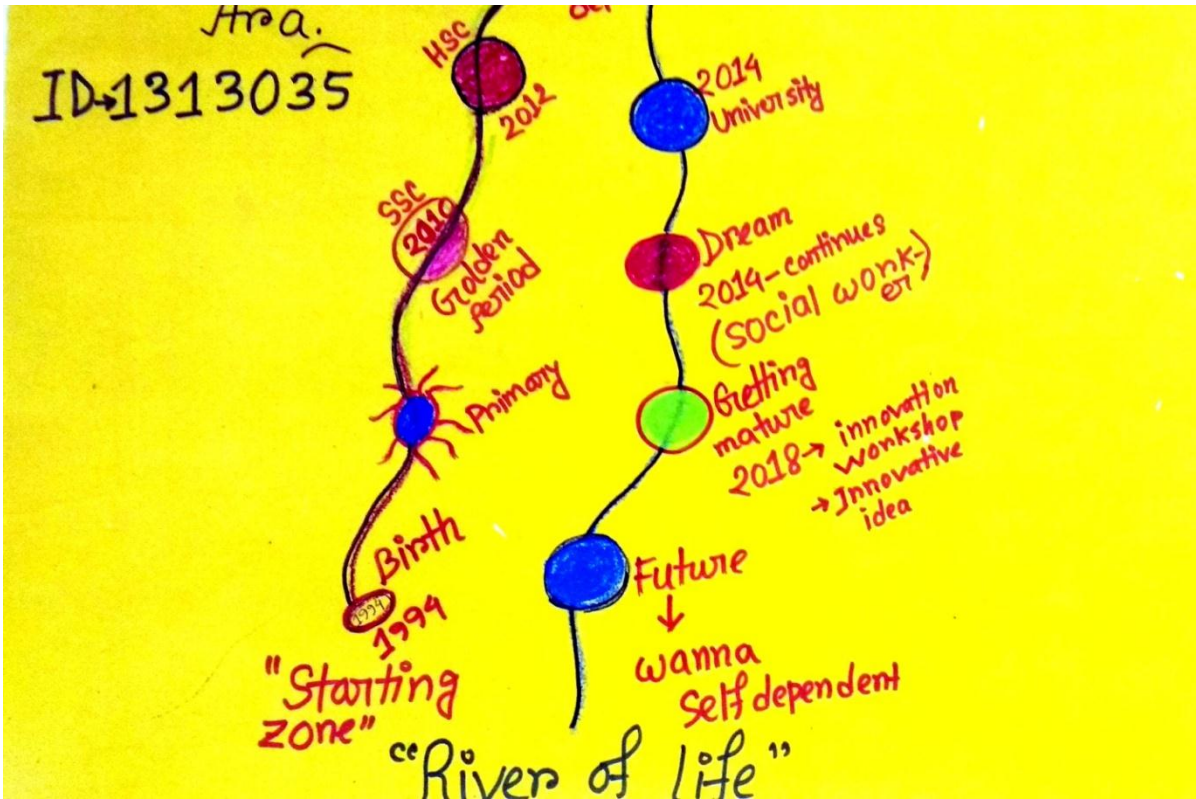 Ara.
ID→1313035
HSC
2012
SSC
2010
Golden
period
Primary
Birth
1994
1994
"Starting
zone"
2014
University
Dream
2014-continues
(social work-
er)
Getting
mature
2018→ innovation
workshop
→Innovative
idea
Future
↓
wanna
Self dependent
"River of life"